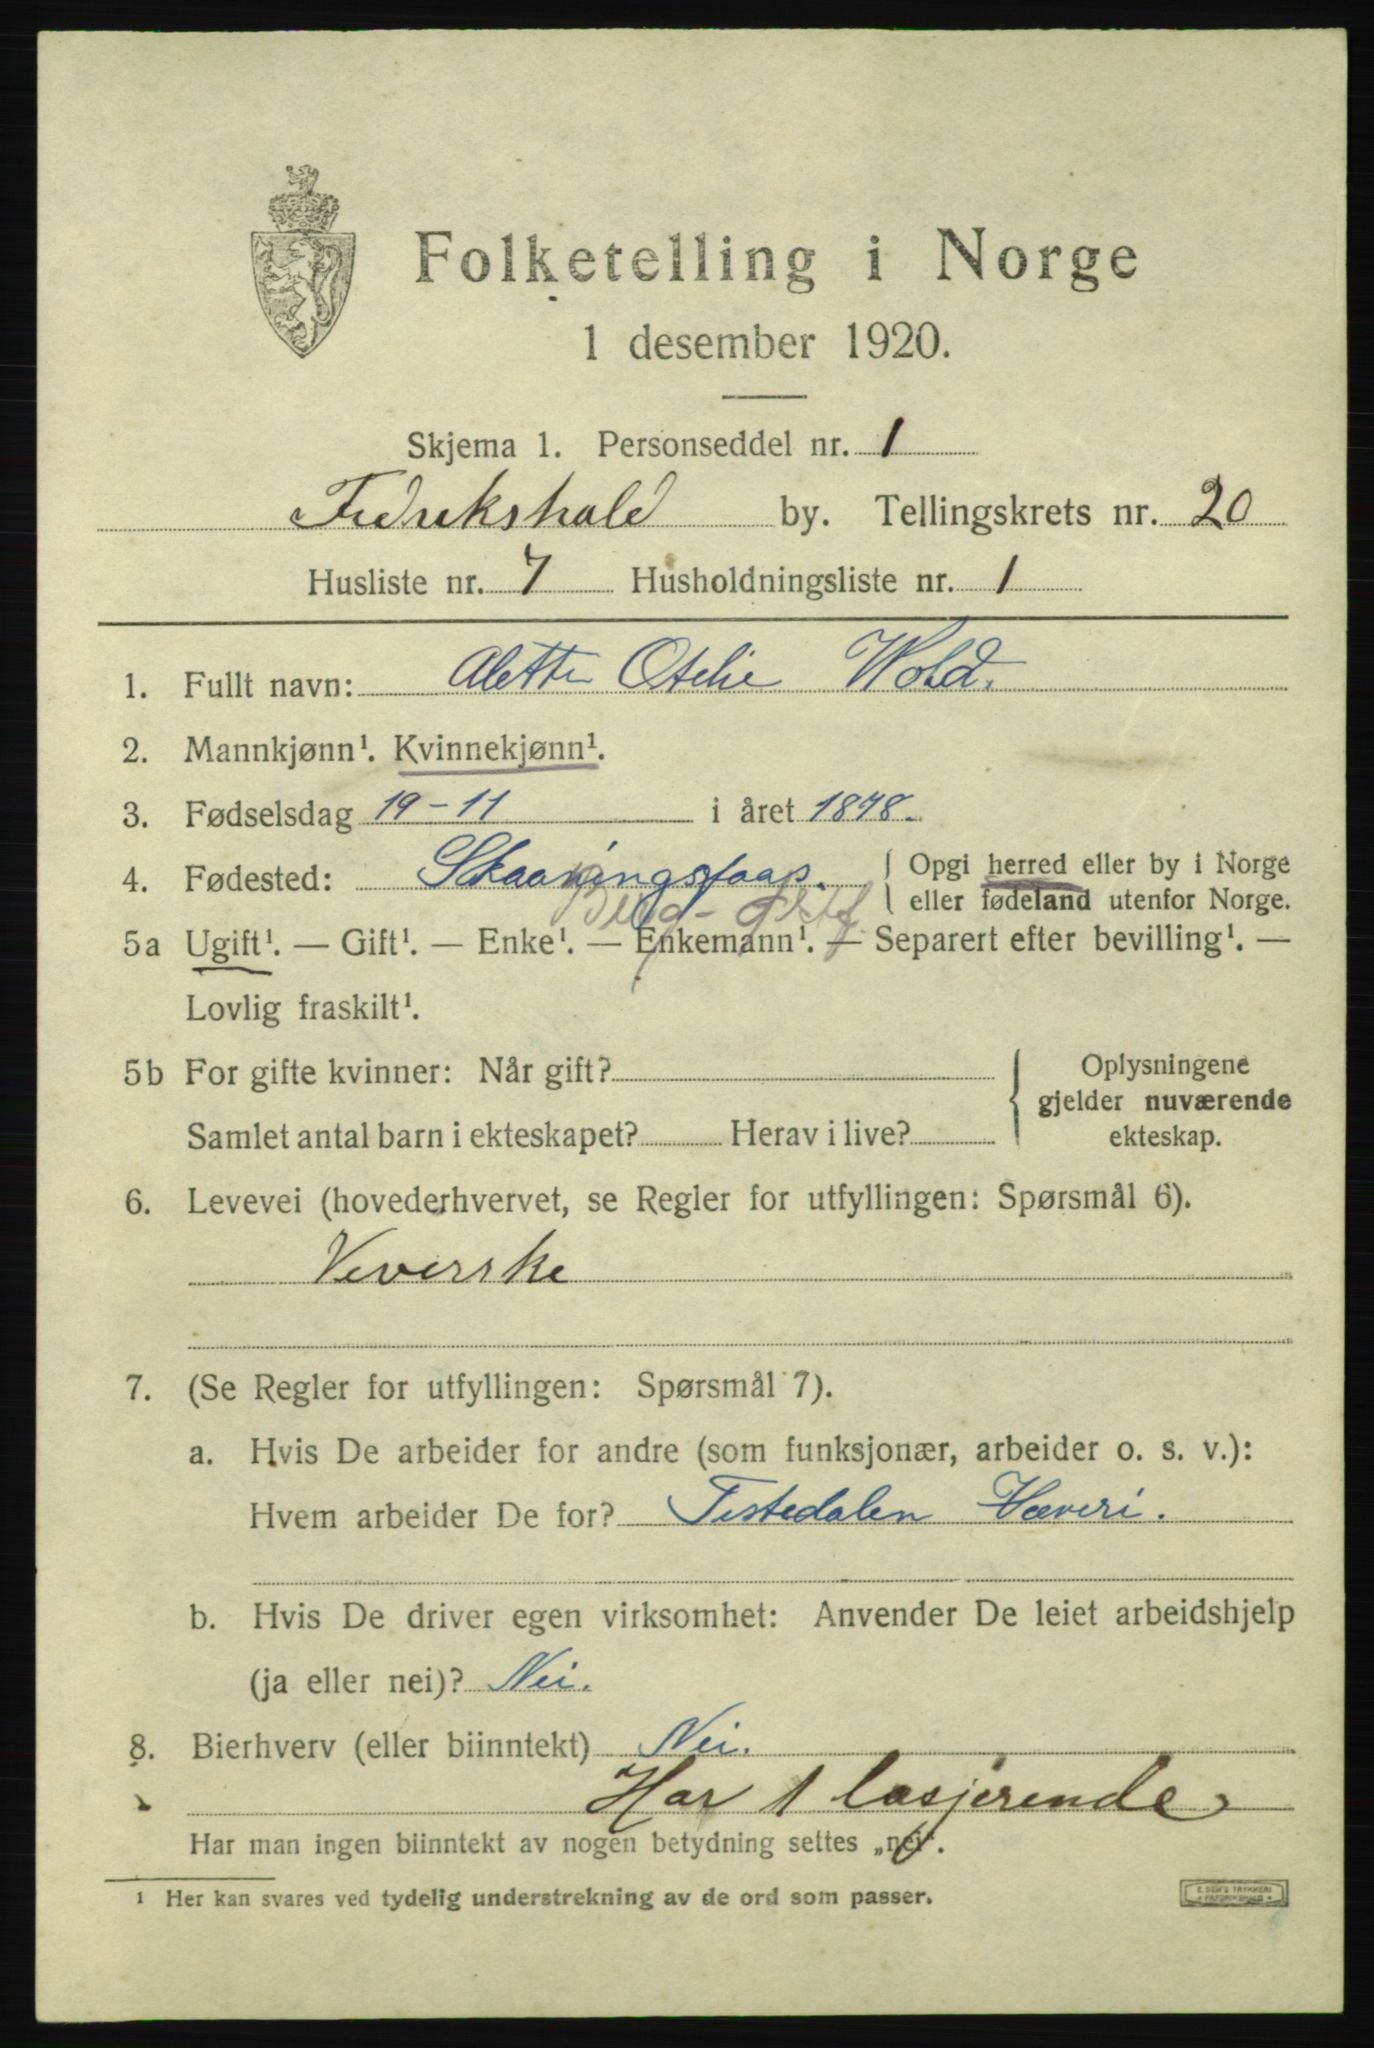 Folketelling i Norge
1 desember 1920.
Skjema 1. Personseddel nr. 1
Fredrikshald by. Tellingskrets nr. 20
Husliste nr. 7 Husholdningsliste nr. 1
1. Fullt navn: Alette Otelie Wold.
2. Mannkjønn¹. Kvinnekjønn¹.
3. Fødselsdag 19-11 i året 1878.
4. Fødested: Opgi herred eller by i Norge
eller fødeland utenfor Norge.
Berg
5a Ugift¹. — Gift¹. — Enke¹. — Enkemann¹. — Separert efter bevilling¹. —
Lovlig fraskilt¹.
5b For gifte kvinner: Når gift? Oplysningene
gjelder nuværende
Samlet antal barn i ekteskapet? Herav i live? ekteskap.
6. Levevei (hovederhvervet, se Regler for utfyllingen: Spørsmål 6).
Veverske
7. (Se Regler for utfyllingen: Spørsmål 7).
a. Hvis De arbeider for andre (som funksjonær, arbeider o. s. v.):
Hvem arbeider De for? Tistedalen Væveri.
b. Hvis De driver egen virksomhet: Anvender De leiet arbeidshjelp
(ja eller nei)? Nei.
8. Bierhverv (eller biinntekt) Nei.
Har 1 losjerende
Har man ingen biinntekt av nogen betydning settes „nei“.
¹ Her kan svares ved tydelig understrekning av de ord som passer.